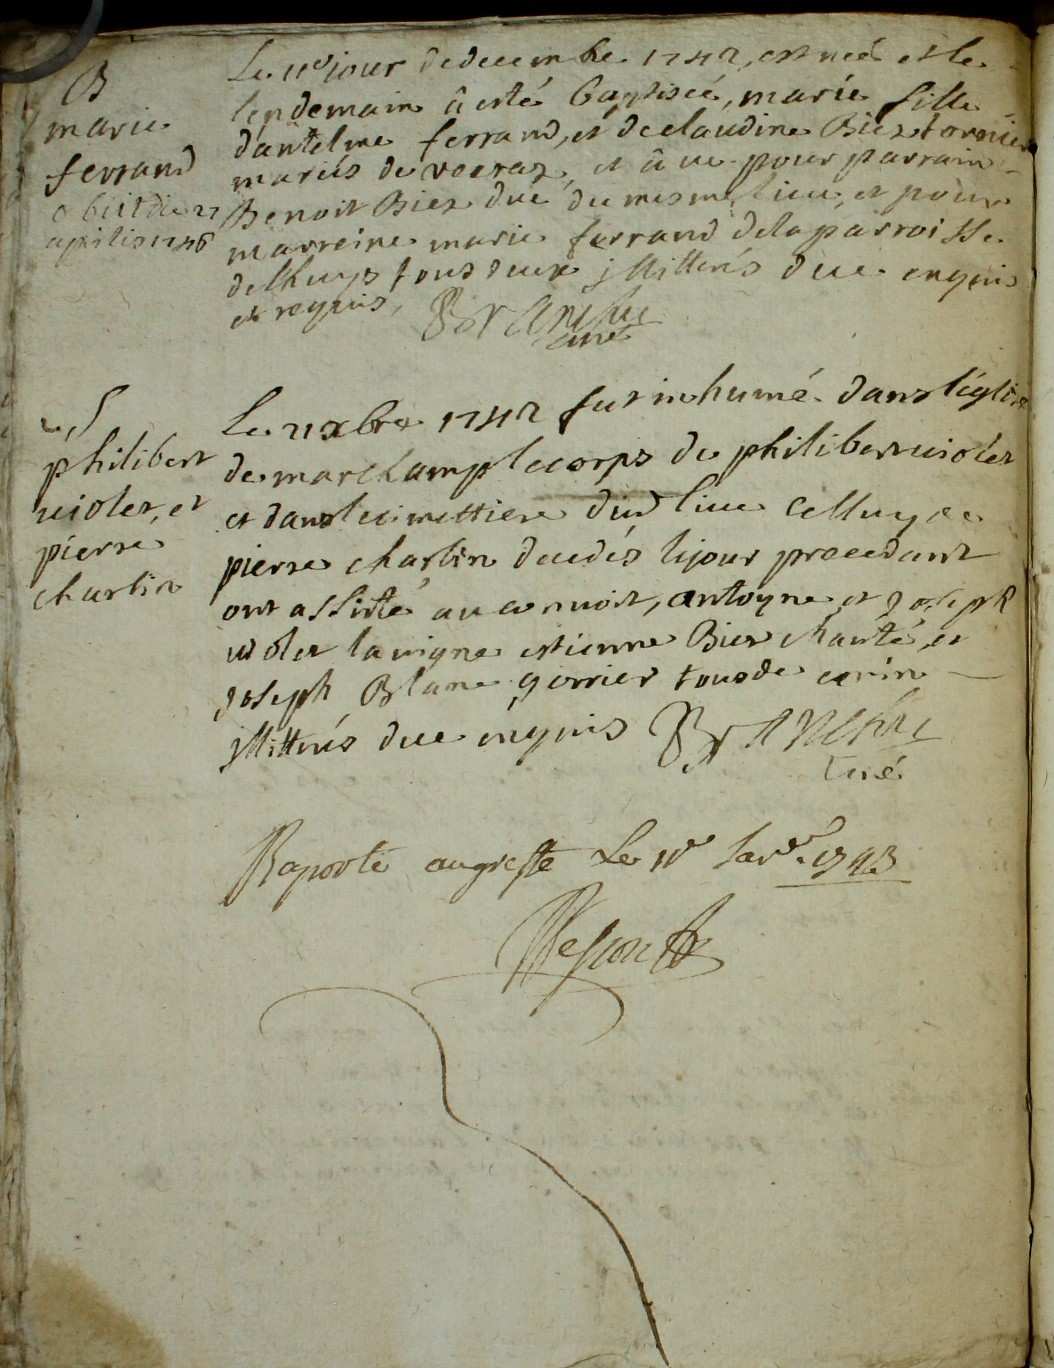 B
marie
ferrand
obiit die 27
aprilis 1746
Le 11e jour de decembre 1742, est neé et le
lendemain â esté baptiseé, marie fille
d'antelme ferrand, et de claudine Biez tornier
mariés de veeraz, et â ue pour parrain
Benoit Biez due du mesme lieu, et pour
marreine marie ferrand de la parroisse
de lhuys tous deux illitterés due enquis
et requis,
curé
S
philibert
violet, et
pierre
charlin
Le 21 xbre 1742 fut inhumé dans l'église
de marchamp le corps de philibert violet
et dans le cimettiere dud lieu celluy de
pierre charlin decedés le jour precedant
ont assisté au convoit, antoyne et joseph
violet la vigne estienne Biez chanté, et
joseph Blanc gerrier tous de cerin
illitterés due enquis
curé
Raporté au greffe Le 11e Janer. 1743